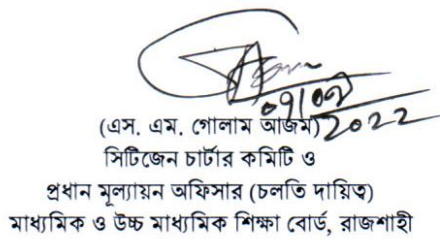 ০৭/০৭
2022
(এস. এম. গোলাম আজম)
সিটিজেন চার্টার কমিটি ও
প্রধান মূল্যায়ন অফিসার (চলতি দায়িত্ব)
মাধ্যমিক ও উচ্চ মাধ্যমিক শিক্ষা বোর্ড, রাজশাহী